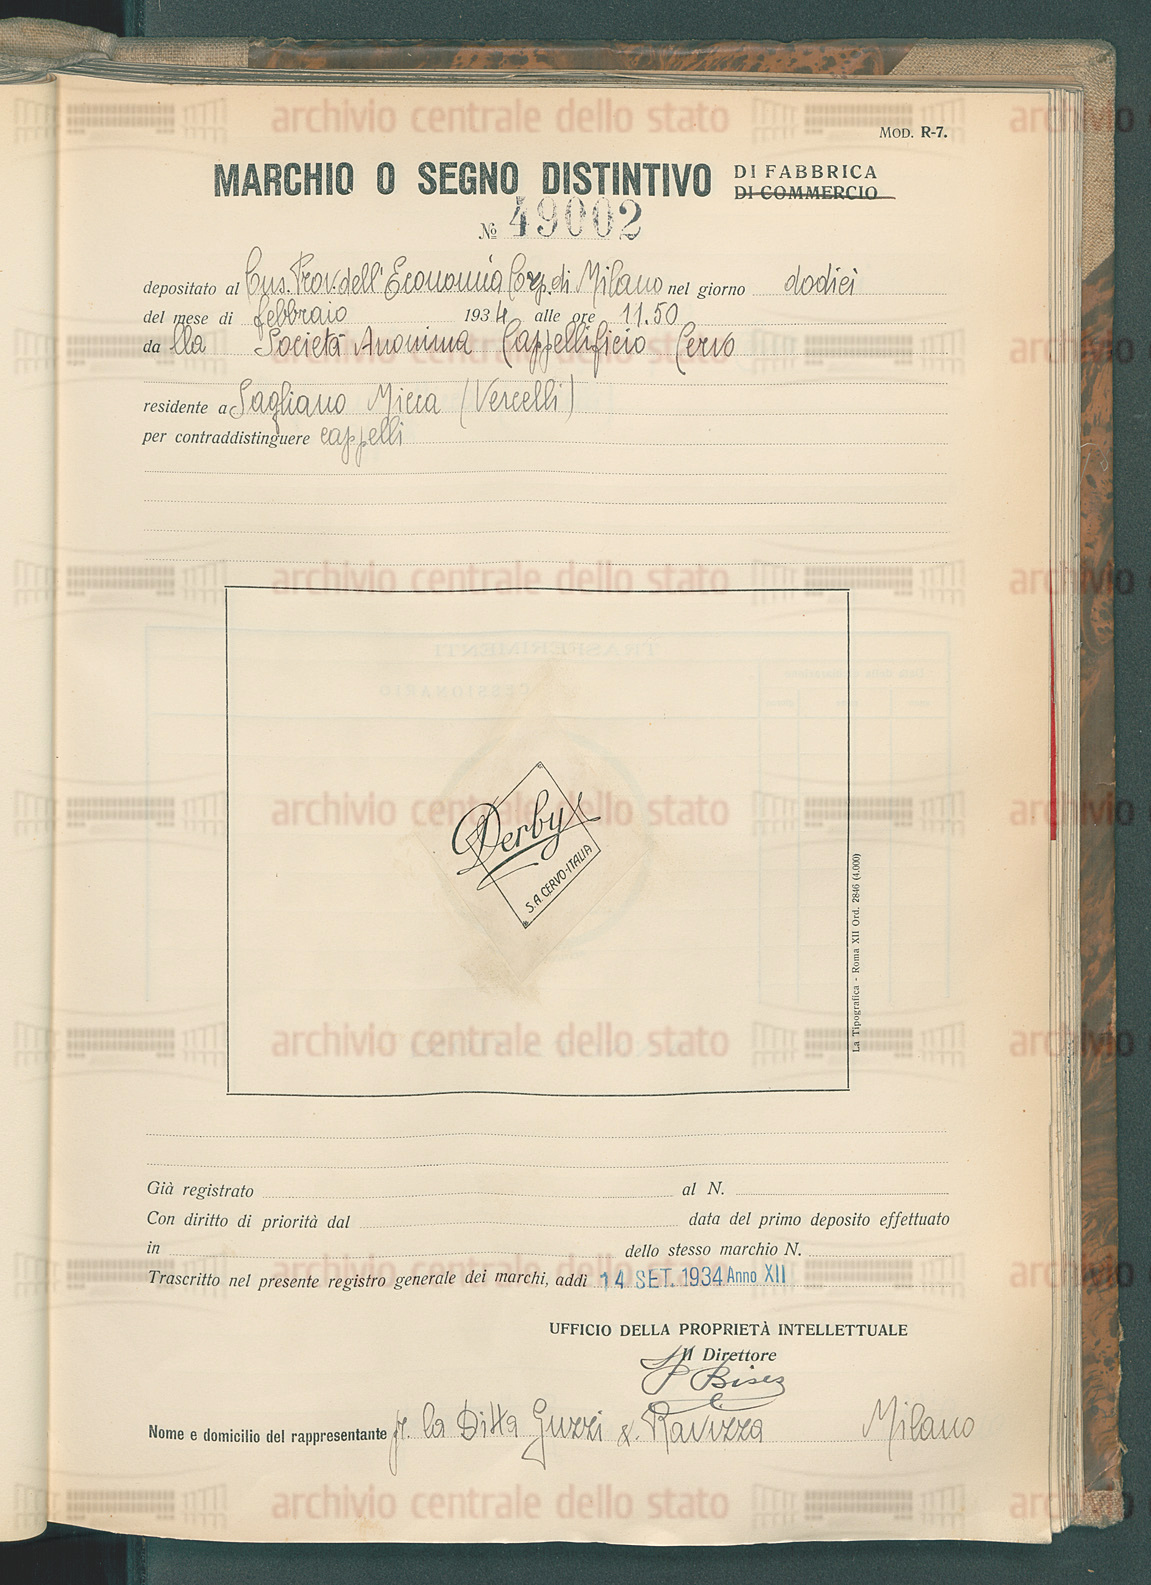 MOD. R-7.
MARCHIO O SEGNO DISTINTIVO DI FABBRICA
DI COMMERCIO
No 49002
depositato al Cons. Prov. dell'Economia Corp. di Milano nel giorno dodici
del mese di febbraio 1934 alle ore 11.50
da lla Società Anonima Cappellificio Cervo
residente a Sagliano Micca (Vercelli)
per contraddistinguere cappelli
TRASFERIMENTI
CESSIONARIO
Derby
S.A. CERVO-ITALIA
La Tipografica - Roma XII Ord. 2846 (4.000)
Già registrato al N.
Con diritto di priorità dal data del primo deposito effettuato
in dello stesso marchio N.
Trascritto nel presente registro generale dei marchi, addì 14 SET. 1934 Anno XII
UFFICIO DELLA PROPRIETÀ INTELLETTUALE
Il Direttore
Nome e domicilio del rappresentante la Ditta Guzzi & Ravizza Milano
archivio centrale dello stato